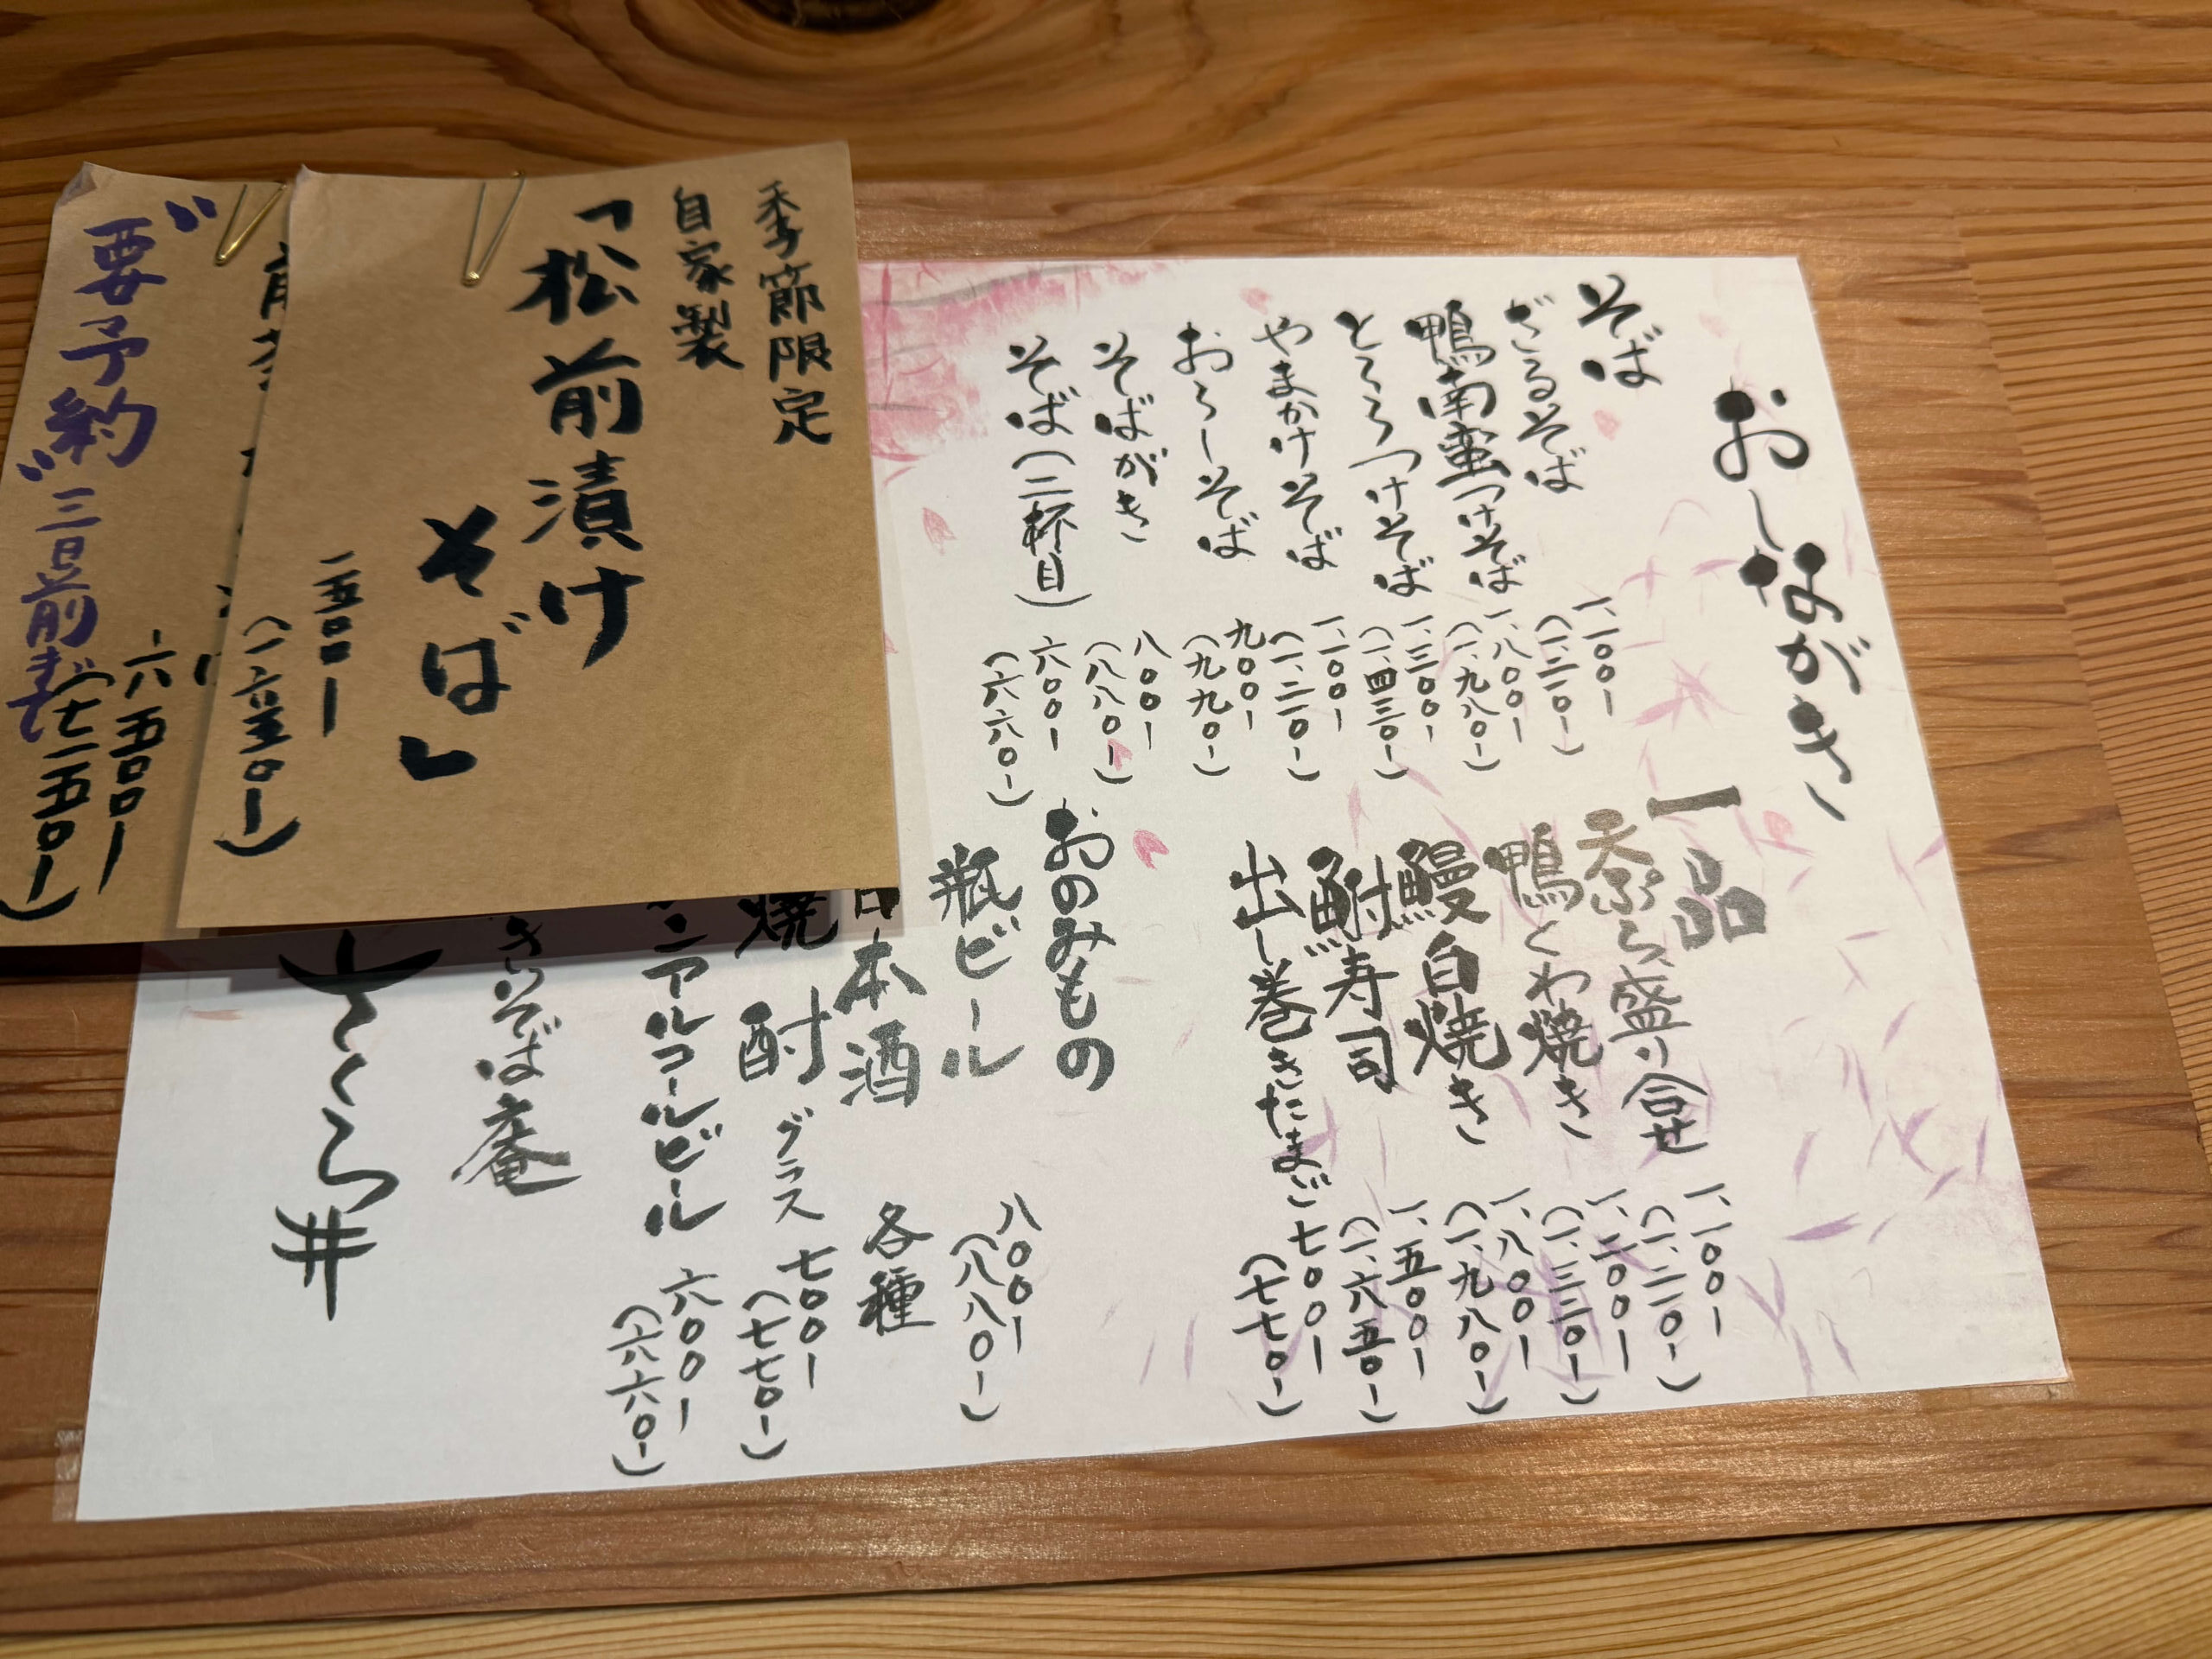 おしながき
そば
ざるそば 一、一〇〇ー
(一、二一〇ー)
鴨南蛮つけそば 一、八〇〇ー
(一、九八〇ー)
とろろつけそば 一、三〇〇ー
(一、四三〇ー)
やまかけそば 一、一〇〇ー
(一、二一〇ー)
おろしそば 九〇〇ー
(九九〇ー)
そばがき 八〇〇ー
(八八〇ー)
そば(二杯目) 六〇〇ー
(六六〇ー)
一品
天ぷら盛り合せ 一、一〇〇ー
(一、二一〇ー)
鴨くわ焼き 一、二〇〇ー
(一、三二〇ー)
鰻白焼き 一、八〇〇ー
(一、九八〇ー)
鮒寿司 一、五〇〇ー
(一、六五〇ー)
出し巻きたまご 七〇〇ー
(七七〇ー)
おのみもの
瓶ビール 八〇〇ー
(八八〇ー)
日本酒 各種
焼酎 グラス 七〇〇ー
(七七〇ー)
ンアルコールビール 六〇〇ー
(六六〇ー)
きいそば庵
さくら井
季節限定
自家製
「松前漬け
そば」
一五〇〇ー
(一、六五〇ー)
六五〇〇ー
(七一五〇ー)
"要予約"三日前まで